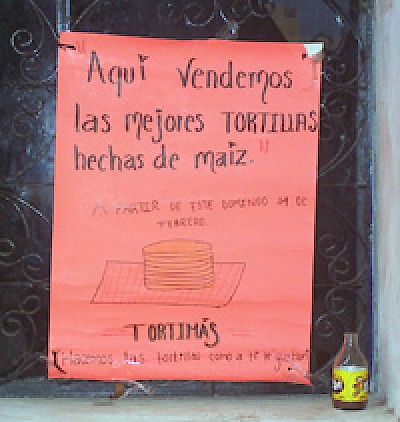 Aqui Vendemos
las mejores TORTILLAS
hechas de maiz."
A PARTIR DE ESTE DOMINGO DE
FEBRERO.
TORTIMÁS
Hacemos las tortillas como a ti te gustan